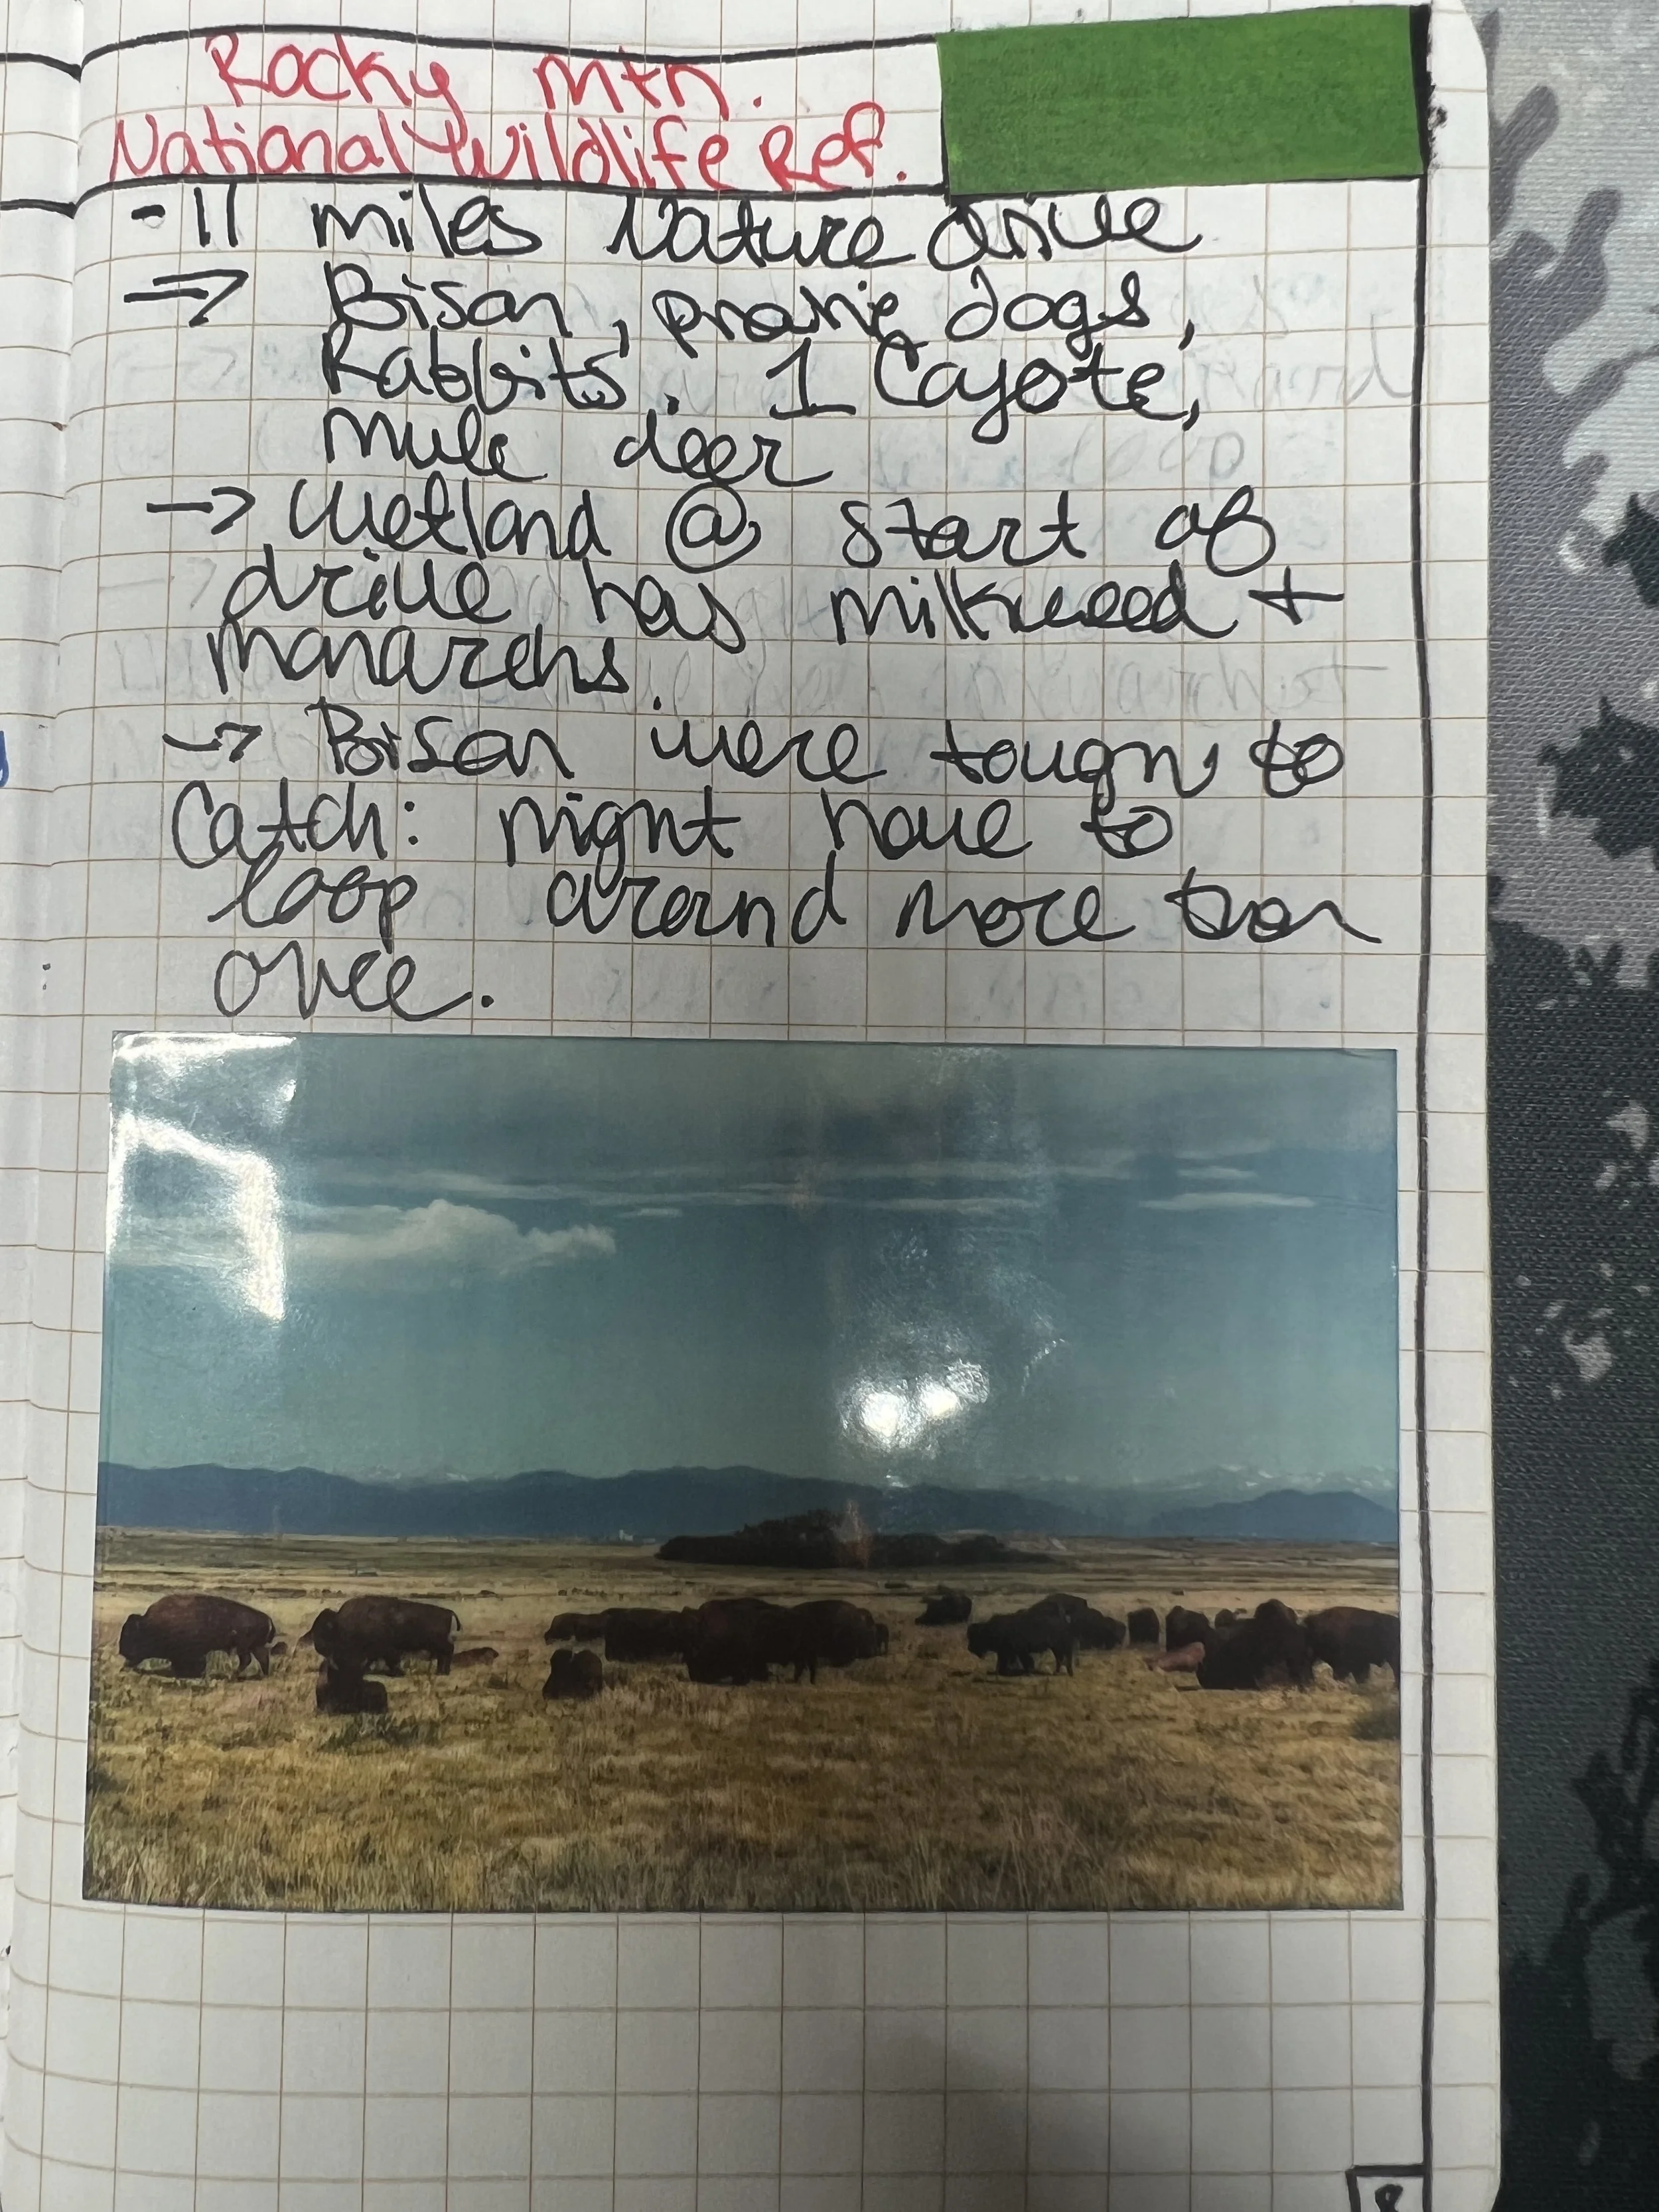 Rocky Mtn.
National Wildlife Ref.
- 11 miles Nature drive
=> Bison, prairie dogs,
Rabbits, 1 Cayote,
Mule deer
-> Wetland @ start of
drive has milkweed +
monarchs.
-> Bison were tough to
Catch: might have to
loop around more than
once.
8